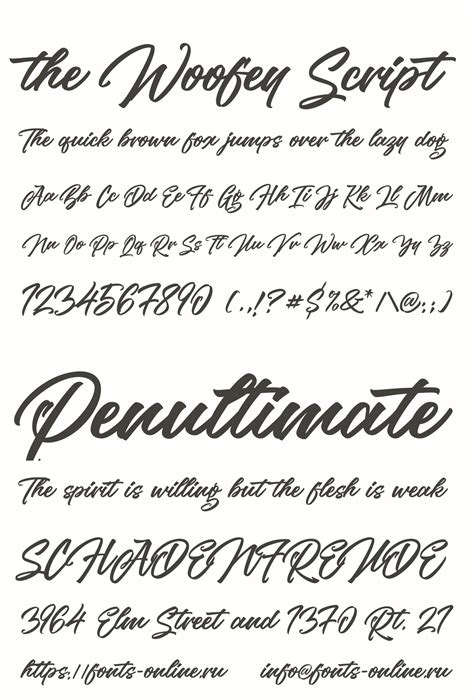 the Woofey Script
The quick brown fox jumps over the lazy dog
Aa Bb Cc Dd Ee Ff Gg Hh Ii Jj Kk Ll Mm
Nn Oo Pp Qq Rr Ss Tt Uu Vv Ww Xx Yy Zz
1234567890 (.,!?#$%&*/\@:;)
Penultimate
The spirit is willing but the flesh is weak
SCHADENFREUDE
3964 Elm Street and 1370 Rt. 21
https://fonts-online.ru info@fonts-online.ru